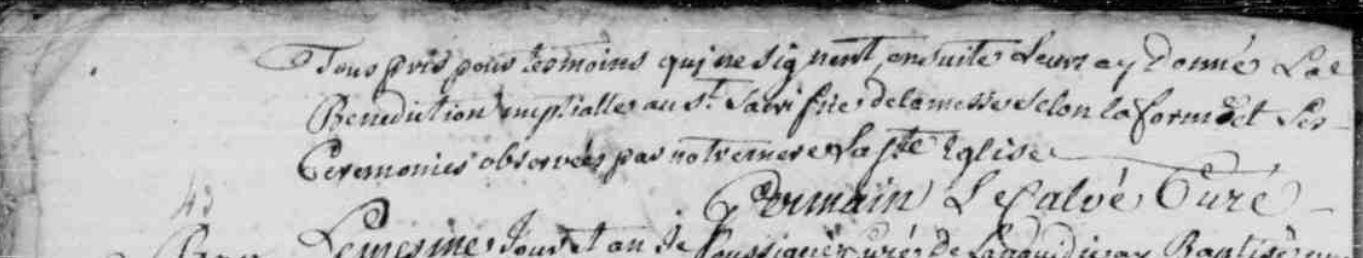 Tous pris pour tesmoins qui ne signent, ensuite Leurs ay donné La
Benediction nuptialle au St. Sacrifice de la messe selon la forme et Les
Ceremonies observées par notre mere La Ste Eglise
Germain Le Calvé Curé
Le mesme Jour et an Je Soussigné Curé de ay Baptisé